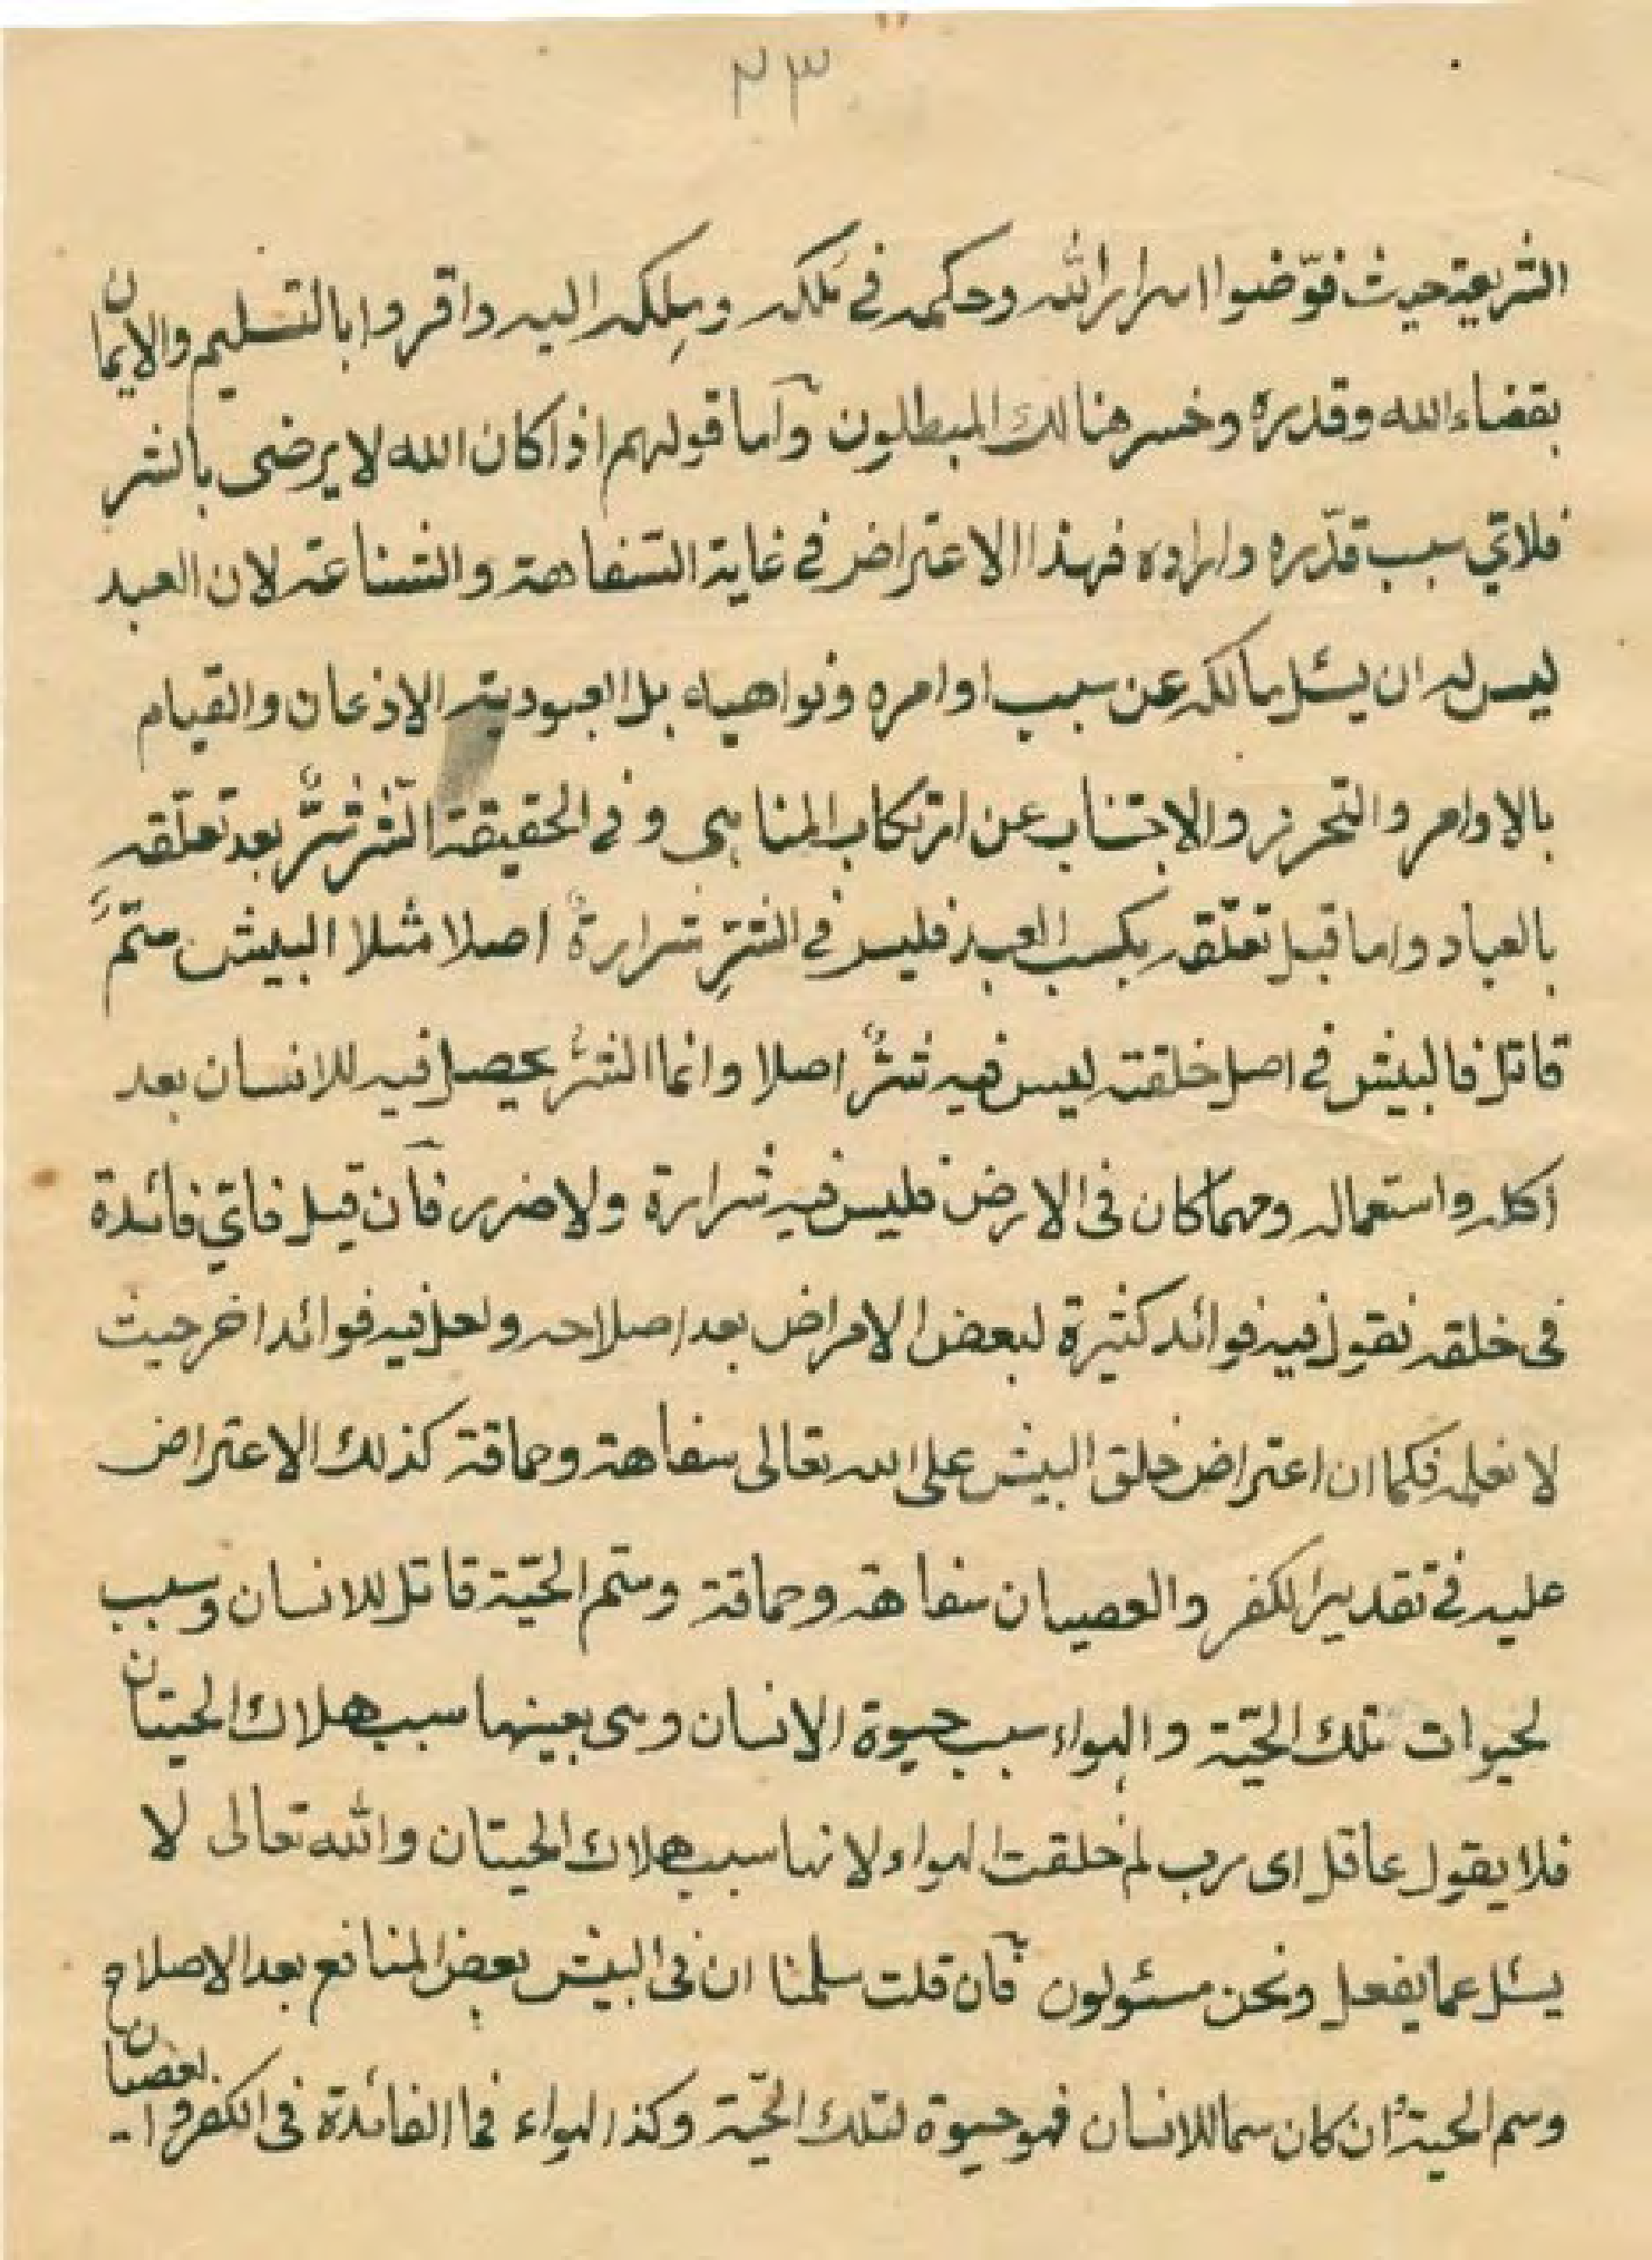 ٢٣
الشريعة حيث فوّضوا اسرار الله وحكمه في مُلكه ومِلكه اليه واقروا بالتسليم والايمان
بقضاء الله وقدره وخسر هنالك المبطلون وآما قولهم اذا كان الله لا يرضى بالشر
فلاي سبب قدّره واراده فهذا الاعتراض في غاية السفاهة والشناعة لان العبد
ليس له ان يسئل مالكه عن سبب اوامره ونواهيه بل العبودية الاذعان والقيام
بالاوامر والتحرز والاجتناب عن ارتكاب المناهى وفى الحقيقة الشّر شرٌّ بعد تعلّقه
بالعباد واما قبل تعلّقه بكسب العبد فليس في الشرِّ شرارةٌ اصلا مثلا البيش سّمٌ
قاتل فالبيش في اصل خلقته ليس فيه شرٌّ اصلا وانما الشرُّ يحصل فيه للانسان بعد
اكله واستعماله ومهما كان فى الارض فليس فيه شرارة ولا ضرر فآن قيل فاي فائدة
فى خلقه نقول فيه فوائد كثيرة لبعض الامراض بعد اصلاحه ولعل فيه فوائد اخر حيث
لا نعلمه فكما ان اعتراض خلق البيش على الله تعالى سفاهة وحماقة كذلك الاعتراض
عليه في تقدير الكفر والعصيان سفاهة وحماقة وسّم الحيّة قاتل للانسان وسبب
لحيوات تلك الحيّة والهواء سبب حيوة الانسان وهى بعينها سبب هلاك الحيتان
فلا يقول عاقل اى رب لم خلقت الهواء لانها سبب هلاك الحيتان والله تعالى لا
يسئل عما يفعل ونحن مسئولون فآن قلت سلمنا ان فى البيش بعض المنافع بعد الاصلاح
وسم الحية ان كان سما للانسان فهو حيوة لتلك الحيّة وكذا الهواء فما الفائدة فى الكفر والعصيان